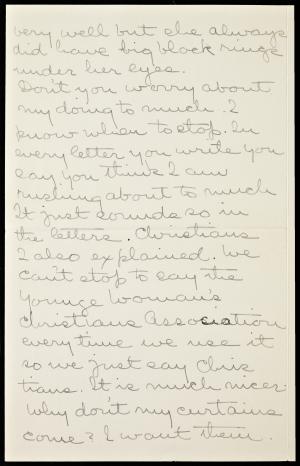 very well but she always
did have big black rings
under her eyes.
Don't you worry about
my doing to much. I
know when to stop. In
every letter you write you
say you think I am
rushing about to much
It just sounds so in
the letters. Christians
I also explained. We
can't stop to say the
Younge Woman's
Christians Association
everytime we use it
so we just say Chris
tians. It is much nicer.
Why don't my curtains
come? I want them.